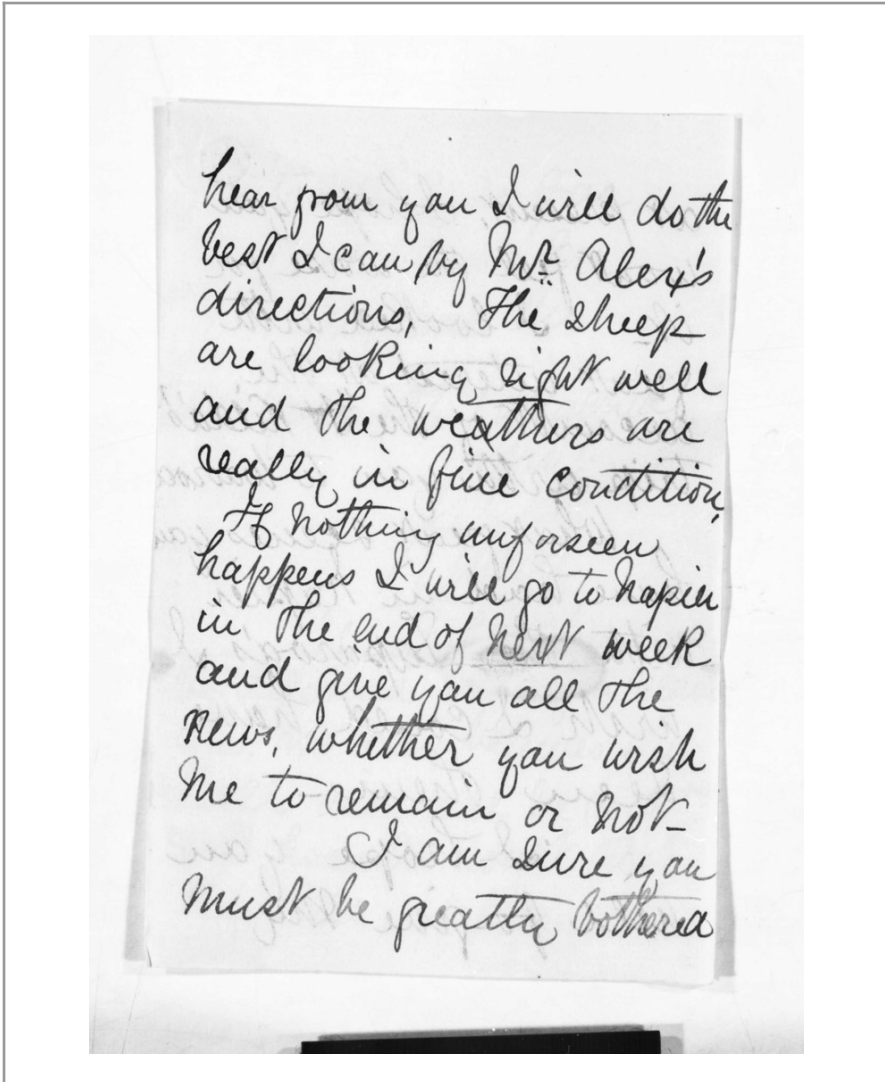 hear from you I will do the
best I can by Mr. Alex's
directions, The sheep
are looking right well
and the weathers are
really in fine condition,
If nothing unforseen
happens I will go to Napier
in the end of next week
and give you all the
news, whether you wish
me to remain or not-
I am sure you
must be greatly bothered